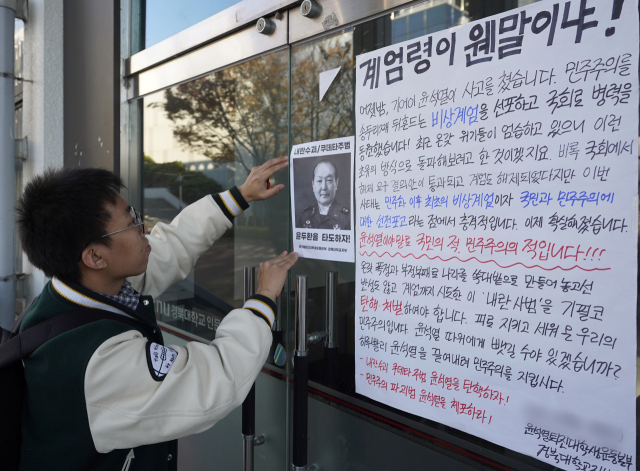 계엄령이 웬말이냐!
어젯밤, 기어이 윤석열이 사고를 쳤습니다. 민주주의를
송두리째 뒤흔드는 비상계엄을 선포하고 국회로 병력을
동원했습니다! 최근 온갖 위기들이 엄습하고 있으니 이런
초유의 방식으로 돌파해보려고 한 것이겠지요. 비록 국회에서
해제 요구 결의안이 통과되고 계엄도 해제되었다지만 이번
사태는, 민주화 이후 최초의 비상계엄이자 국민과 민주주의에
대한 선전포고라는 점에서 충격적입니다. 이제 확실해졌습니다.
윤석열이야말로 국민의 적, 민주주의의 적입니다!!!
온갖 폭정과 부정부패로 나라를 쑥대밭으로 만들어 놓고선
반성도 않고 계엄까지 시도한 이 '내란사범'을 기필코
탄핵 처벌하여야 합니다. 피로 지키고 세워온 우리의
민주주의입니다. 윤석열 따위에게 뺏길 수야 있겠습니까?
하루빨리 윤석열을 끌어내려 민주주의를 지킵시다.
- 내란수괴 쿠데타주범 윤석열을 탄핵하자!
- 민주주의 파괴범 윤석열을 체포하라!
윤석열퇴진대학생운동본부
경북대학교
내란수괴/쿠데타주범
윤두환을 타도하자!
경북대학교 인문